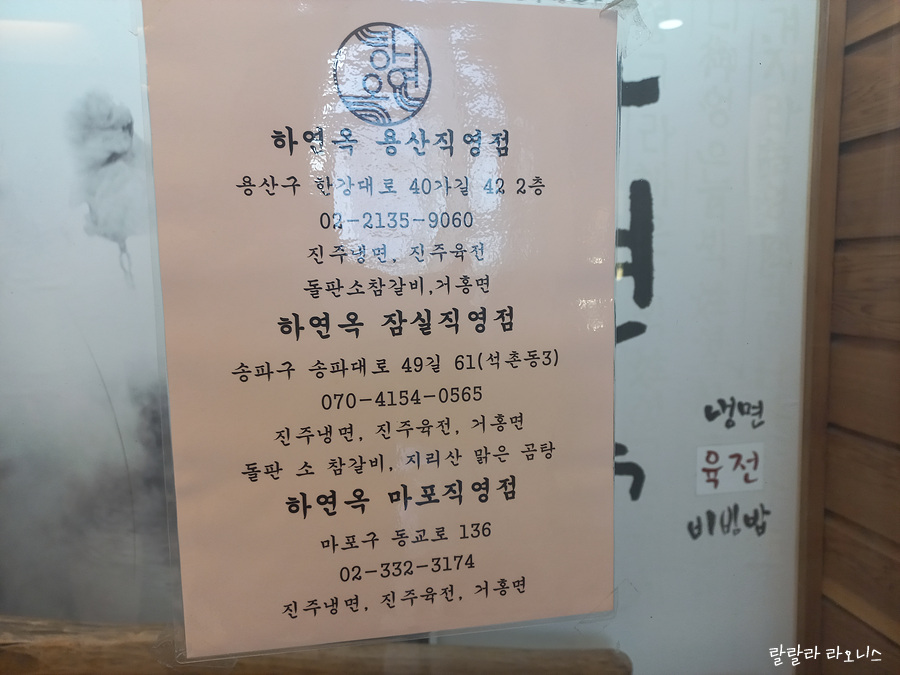 하연옥
하연옥 용산직영점
용산구 한강대로 40가길 42 2층
02-2135-9060
진주냉면, 진주육전
돌판소참갈비,거홍면
하연옥 잠실직영점
송파구 송파대로 49길 61(석촌동3)
070-4154-0565
진주냉면, 진주육전, 거홍면
돌판 소 참갈비, 지리산 맑은 곰탕
하연옥 마포직영점
마포구 동교로 136
02-332-3174
진주냉면, 진주육전, 거홍면
냉면
육전
비빔밥
랄랄라 라오니스